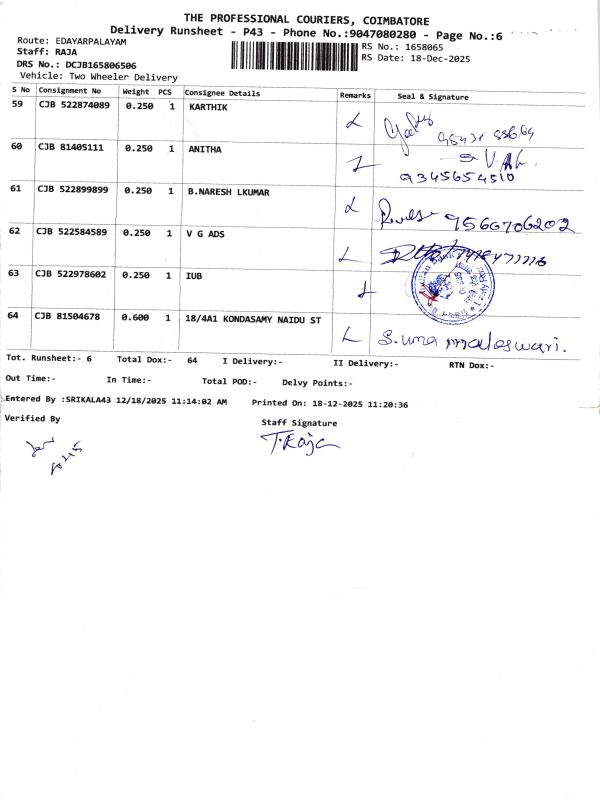 THE PROFESSIONAL COURIERS, COIMBATORE
Delivery Runsheet - P43 - Phone No.:9047080280 - Page No.:6
Route: EDAYARPALAYAM
RS No.: 1658065
Staff: RAJA
RS Date: 18-Dec-2025
DRS No.: DCJB165806506
Vehicle: Two Wheeler Delivery
S No Consignment No Weight PCS Consignee Details Remarks Seal & Signature
59 CJB 522874089 0.250 1 KARTHIK L
60 CJB 81405111 0.250 1 ANITHA L
9345654510
61 CJB 522899899 0.250 1 B.NARESH LKUMAR L 9566706202
62 CJB 522584589 0.250 1 V G ADS L
63 CJB 522978602 0.250 1 IUB L
64 CJB 81504678 0.600 1 18/4A1 KONDASAMY NAIDU ST L S.uma maheswari.
Tot. Runsheet:- 6 Total Dox:- 64 I Delivery:- II Delivery:- RTN Dox:-
Out Time:- In Time:- Total POD:- Delvy Points:-
Entered By :SRIKALA43 12/18/2025 11:14:02 AM Printed On: 18-12-2025 11:20:36
Verified By
Staff Signature
T.Raja